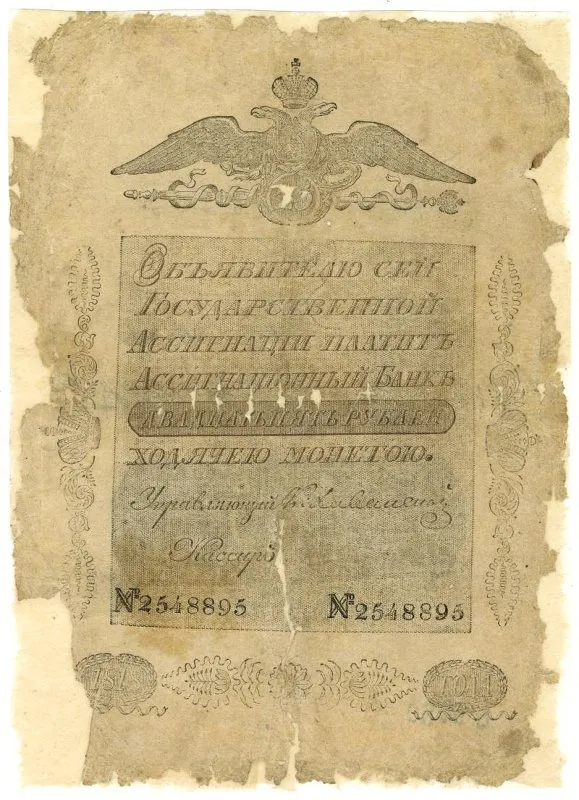 Объявителю сей
Государственной
Ассигнаціи платитъ
Ассигнаціонный Банкъ
двадцать пять рублей
ходячею монетою.
Управляющій
Кассиръ
№2548895 №2548895